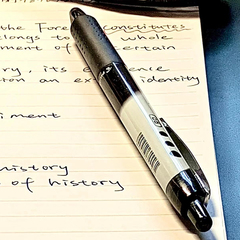 the Fore constitutes
elongs to whole
ment of certain
ry, its ence
ion an ex identity
iment
history
e of history